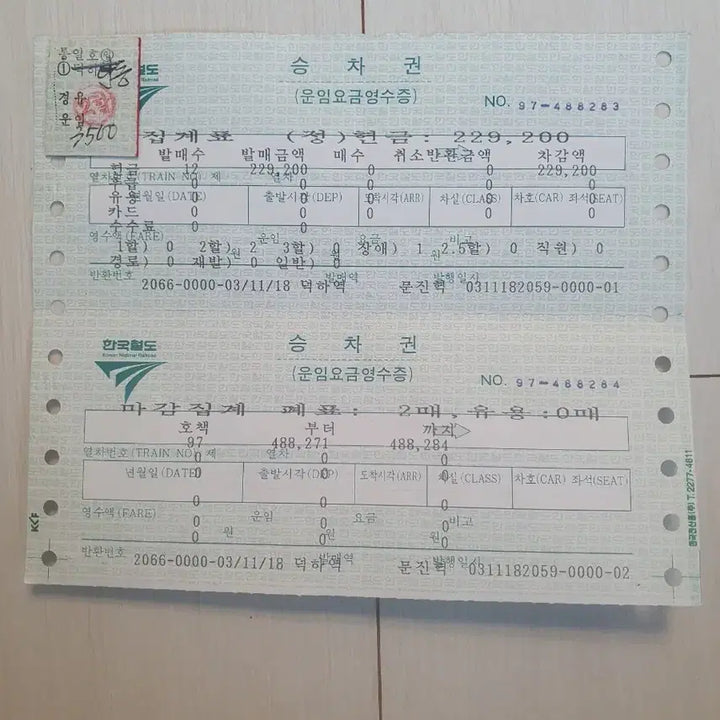 통일호
경유
운임 7500
승 차 권
(운임요금영수증)
NO. 97-488283
집계표 (정)현금: 229,200
발매수 발매금액 매수 취소반환금액 차감액
현금 12 229,200 0 0 229,200
열차번호(TRAIN NO) 제 열차
년월일(DATE) 출발시각(DEP) 도착시각(ARR) 차실(CLASS) 차호(CAR) 좌석(SEAT)
유용 0 0 0 0 0
카드 0 0 0 0 0
수수료 0 0
영수액(FARE) 운임 요금 비고
1할) 0 2할) 2 3할) 0 장애) 1 2.5할) 0 직원) 0
원 원
경로) 0 재발) 0 일반) 0
반환번호 발매역 발행일시
2066-0000-03/11/18 덕하역 문진혁 0311182059-0000-01
한국철도
Korean National Railroad
승 차 권
(운임요금영수증)
NO. 97-488284
마감집계 폐표: 2매,유용:0매
호책 부터 까지
97 488,271 488,284
열차번호(TRAIN NO) 제 열차
0 0 0
년월일(DATE) 출발시각(DEP) 도착시각(ARR) 차실(CLASS) 차호(CAR) 좌석(SEAT)
0 0 0
영수액(FARE) 운임 요금 비고
0 0 0
원 원 원
반환번호 발매역 발행일시
2066-0000-03/11/18 덕하역 문진혁 0311182059-0000-02
T. 2277-4811